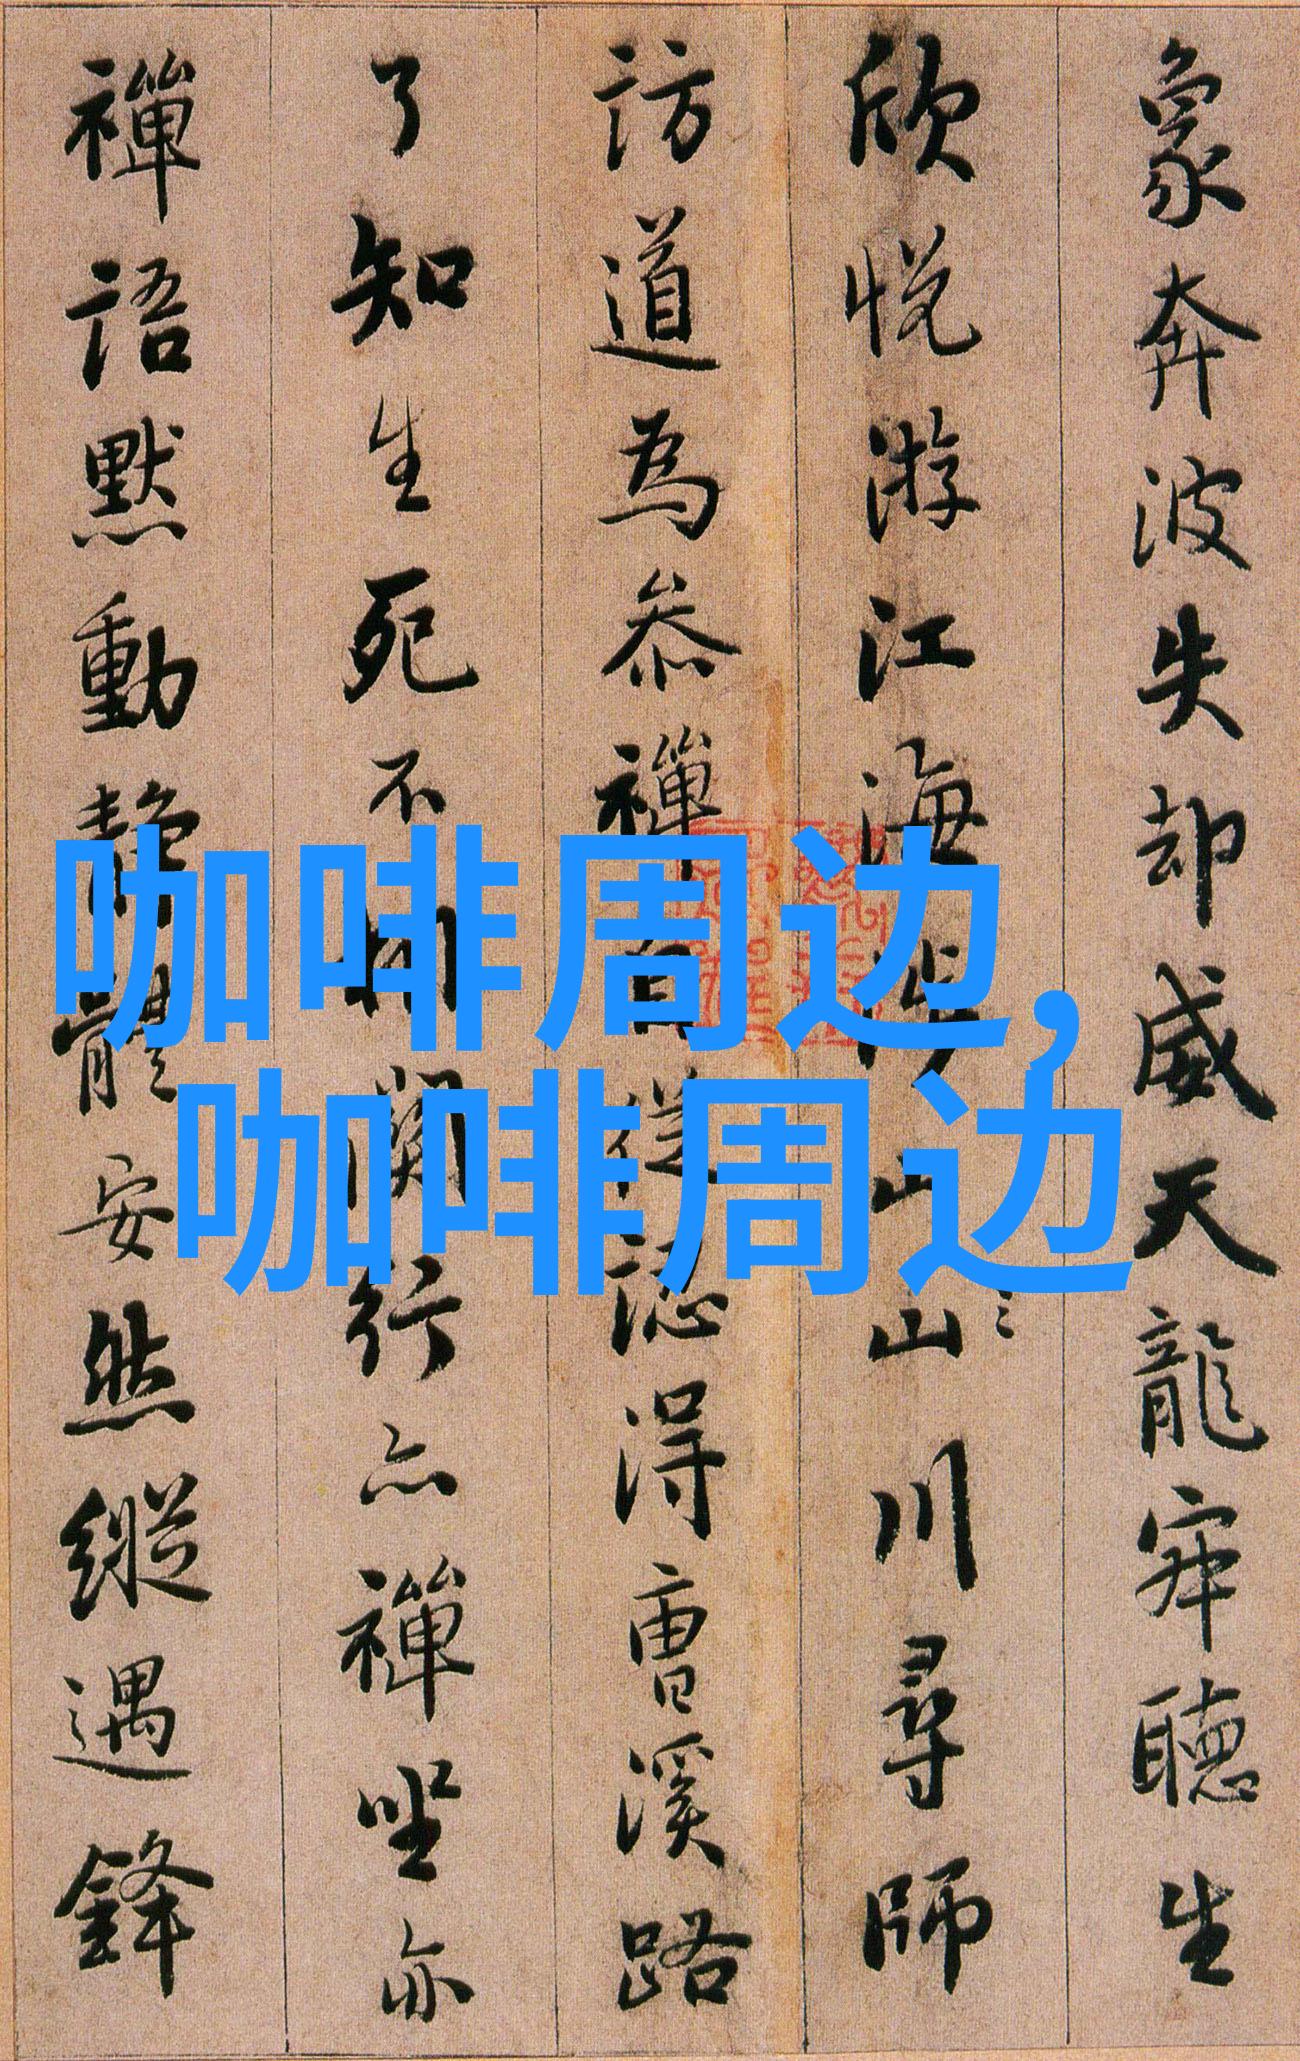 象奔波失却威天龍寂聽生
欣悅游江海山山川尋師
訪道為叅禪自從認得曹溪路
了知生死不相關行亦禪坐亦
禪語默動靜體安然縱遇鋒
咖啡周边,
咖啡周边